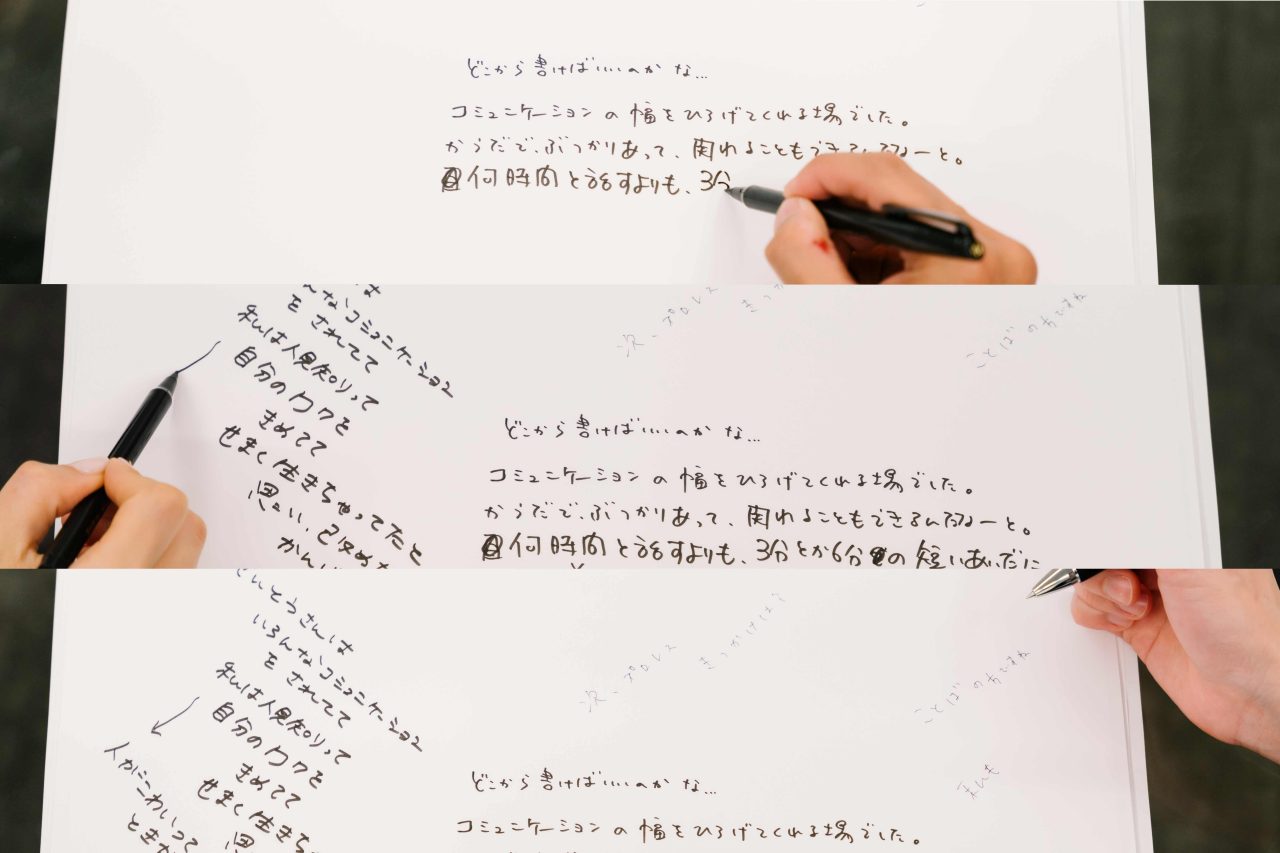 どこから書けばいいのかな…
コミュニケーションの幅をひろげてくれる場でした。
からだで、ぶつかりあって、関わることもできるんだなーと。
何時間と話すよりも、3分
んなコミュニケーション
をされてて
私は人見知りって
自分のワクを
きめてて
せまく生きちゃってたと
思い、
次、プロレス
ことば
どこから書けばいいのかな…
コミュニケーションの幅をひろげてくれる場でした。
からだで、ぶつかりあって、関わることもできるんだなーと。
何時間と話すよりも、3分とか6分の短いあいだに
さんは
いろんなコミュニケーション
をされてて
私は人見知りって
自分のワクを
きめてて
せまく生きち
思
人がこわいって
次、プロレス
きっかけは?
ことば
どこから書けばいいのかな…
コミュニケーションの幅をひろげてくれる場でした。